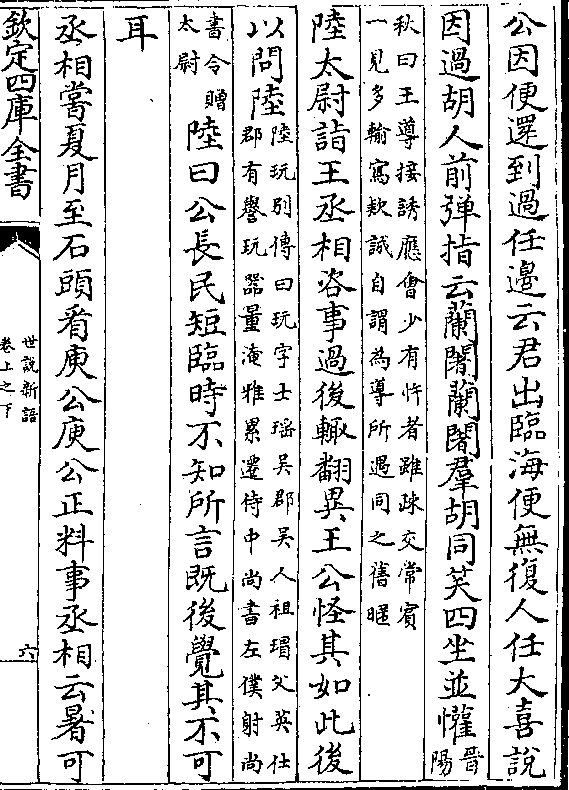 公因便還到過任邊云君出臨海便無復人任大喜說
因過胡人前弹指云蘭闍蘭闍羣胡同笑四坐並懽晉陽
秋曰王導接誘應會少有忤者雖疎交常賓
一見多輸寫欵誠自謂為導所遇同之舊暱
陸太尉詣王丞相咨事過後輙翻異王公怪其如此後
以問陸陸玩别傳曰玩字士瑶吴郡吴人祖瑁父英仕
郡有譽玩器量淹雅累遷侍中尚書左僕射尚
書令贈
太尉
陸曰公長民短臨時不知所言既後覺其不可
耳
丞相嘗夏月至石頭看庾公庾公正料事丞相云暑可
欽定四庫全書
世說新語
卷上之下
六